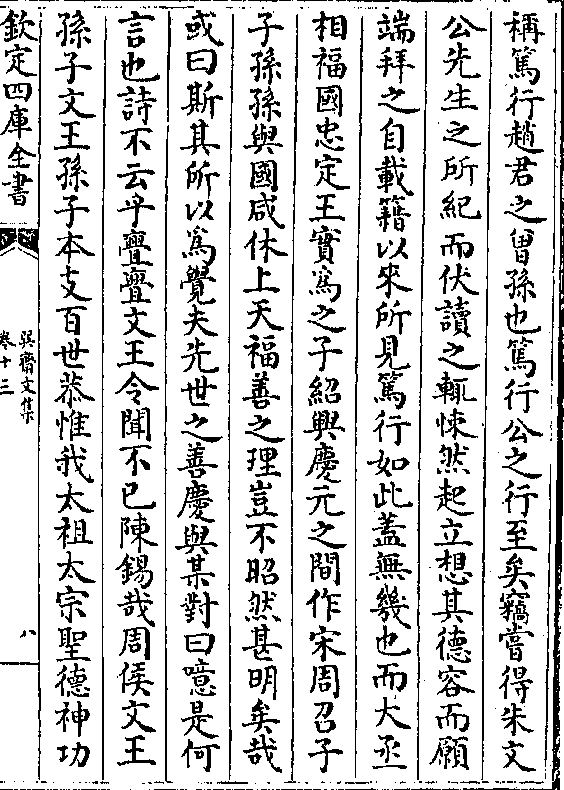 稱篤行趙君之曾孫也篤行公之行至矣竊嘗得朱文
公先生之所紀而伏讀之輒悚然起立想其德容而願
端拜之自載籍以來所見篤行如此蓋無幾也而大丞
相福國忠定王實爲之子紹興慶元之間作宋周召子
子孫孫與國咸休上天福善之理豈不昭然甚明矣哉
或曰斯其所以爲覺夫先世之善慶與某對曰噫是何
言也詩不云乎亹亹文王令聞不已陳錫哉周侯文王
孫子文王孫子本支百世恭惟我太祖太宗聖德神功
欽定四庫全書
巽齋文集
卷十三
八